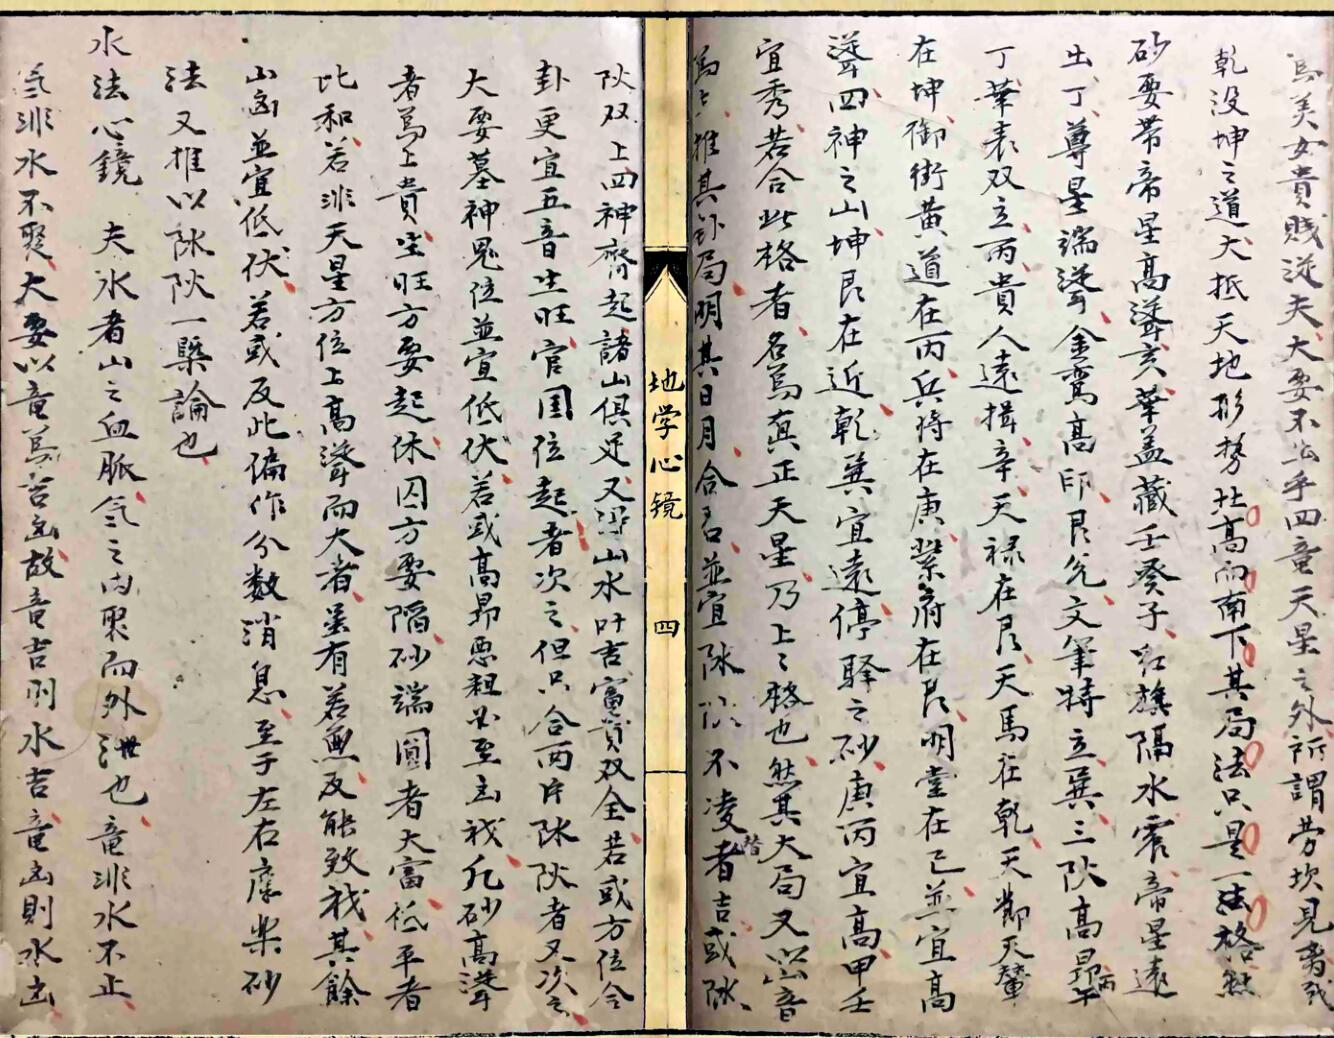 為美女貴賤從夫大要不出乎四竜天星之外所謂勞坎見离戏
乾没坤之道大抵天地形势北高而南下其局法只是一法格然
砂要带帝星高聳亥華盖藏壬癸子红旗隔水震帝星遠
土丁尊星端聳金鸾高印艮兑文筆特立巽三阦高昻午丙
丁華表双立丙貴人遠揖辛天禄在艮天馬在乾天鄰天輦
在坤御街黄道在丙兵将在庚紫府在艮明堂在巳並宜高
聳四神之山坤艮在近乾巽宜遠停驿之砂庚丙宜高甲壬
宜秀若合此格者名為真正天星乃上〻格也然其大局又以音
為主推其卦局明其日月合吕並宜阥以不凌替者吉或阥
阦双上四神齊起諸山俱足又得山水叶吉富貴双全若或方位合
卦更宜五音生旺官国位起者次之但只合两片阥阦者又次之
大要墓神鬼位並宜低伏若或高昻恶粗必至主祸凡砂高聳
者為上貴生旺方要起休囚方要陷砂端圓者大富低平者
比和若非天星方位上高聳而大者虽有若無反能致祸其餘
山凶並宜低伏若或反此偏作分数消息至于左右摩
法又推以阥阦一槩論也
水法心鏡　夫水者山之血脈氣之内聚而外泄也竜非水不止
氣非水不聚大要以竜為吉凶故竜吉則水吉竜凶則水凶
地学心镜
四